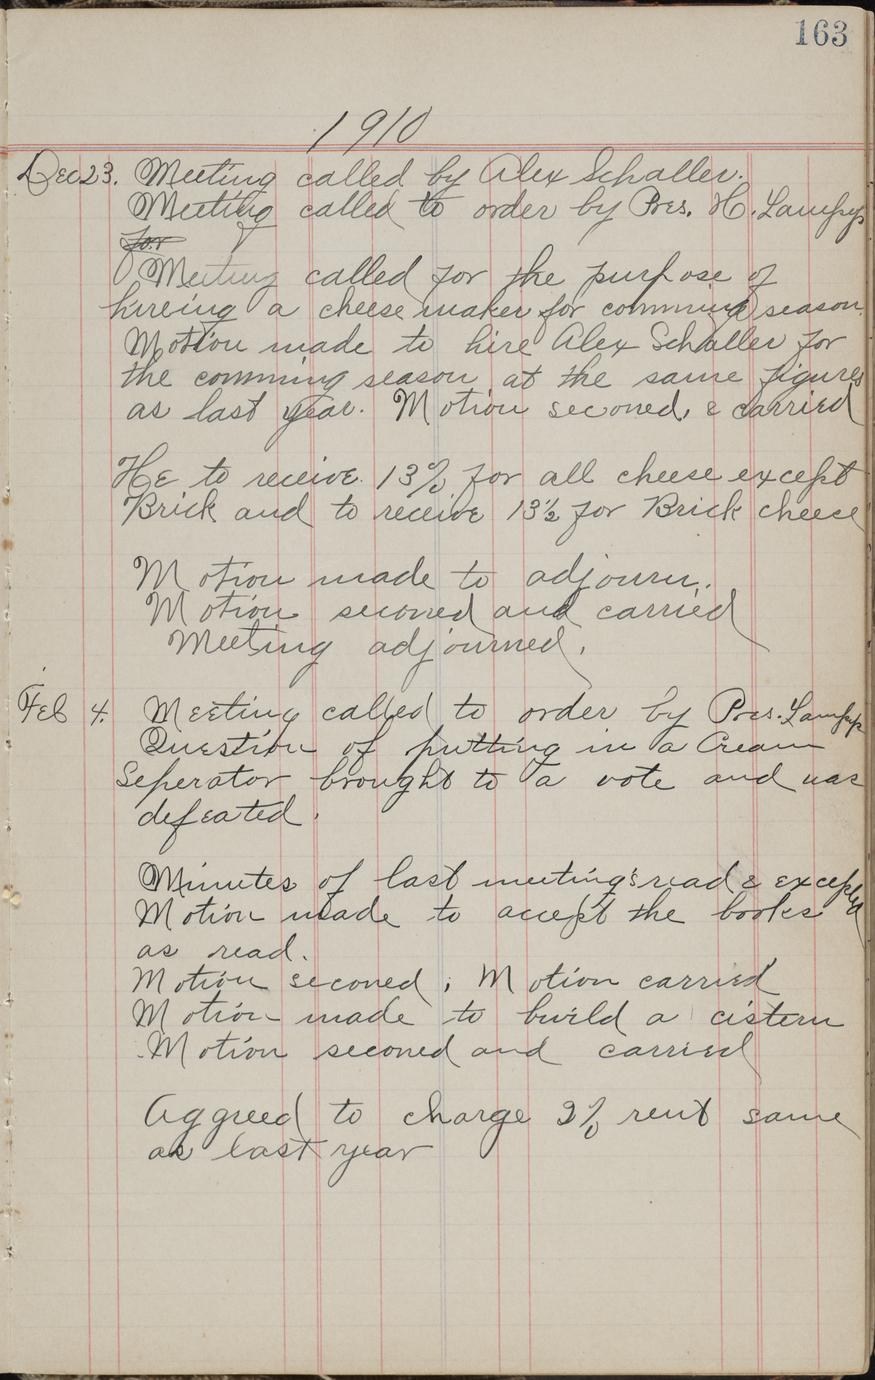 163
1910
Dec 23. Meeting called by Alex Schaller.
Meeting called to order by Pres. H. Lamfyp
for
Meeting called for the purpose of
hireing a cheese maker for comming season.
Motion made to hire Alex Schaller for
the comming season at the same figures
as last year. Motion seconed, & carried
He to receive 13% for all cheese except
Brick and to receive 13½ for Brick cheese
Motion made to adjourn.
Motion seconed and carried
Meeting adjourned.
Feb 4. Meeting called to order by Pres.
Question of putting in a Cream
Seperator brought to a vote and was
defeated.
Minutes of last meeting's read & excepted
Motion made to accept the books
as read.
Motion seconed, Motion carried
Motion made to build a cistern
Motion seconed and carried
Aggreed to charge 2% rent same
as last year